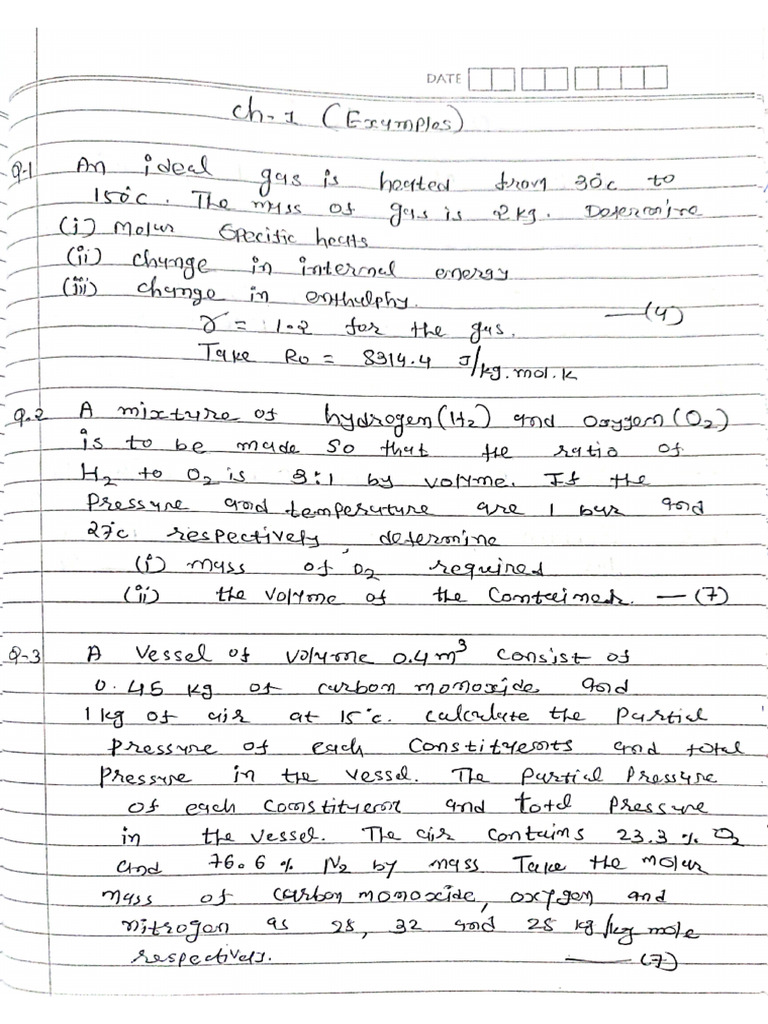 DATE
Ch-1 (Examples)
Q-1 An ideal gas is heated from 30°c to
150°c. The mass of gas is 2 kg. Determine
(i) Molar Specific heats
(ii) change in internal energy
(iii) change in enthalphy. —(4)
γ = 1.2 for the gas.
Take Ro = 8314.4 J/kg.mol.k
Q.2 A mixture of hydrogen (H2) and oxygen (O2)
is to be made so that the ratio of
H2 to O2 is 3:1 by volume. If the
Pressure and temperature are 1 bar and
27°c respectively, determine
(i) mass of O2 required
(ii) the volume of the Container. —(7)
Q-3 A vessel of volume 0.4 m³ consist of
0.45 kg of carbon monoxide and
1 kg of air at 15°c. calculate the Partial
Pressure of each constityents and total
Pressure in the vessel. The Partial Pressure
of each constituent and total Pressure
in the vessel. The air contains 23.3 % O2
and 76.6 % N2 by mass Take the molar
mass of carbon monoxide, oxygen and
nitrogen as 28, 32 and 28 kg/kg mole
respectively. —(7)